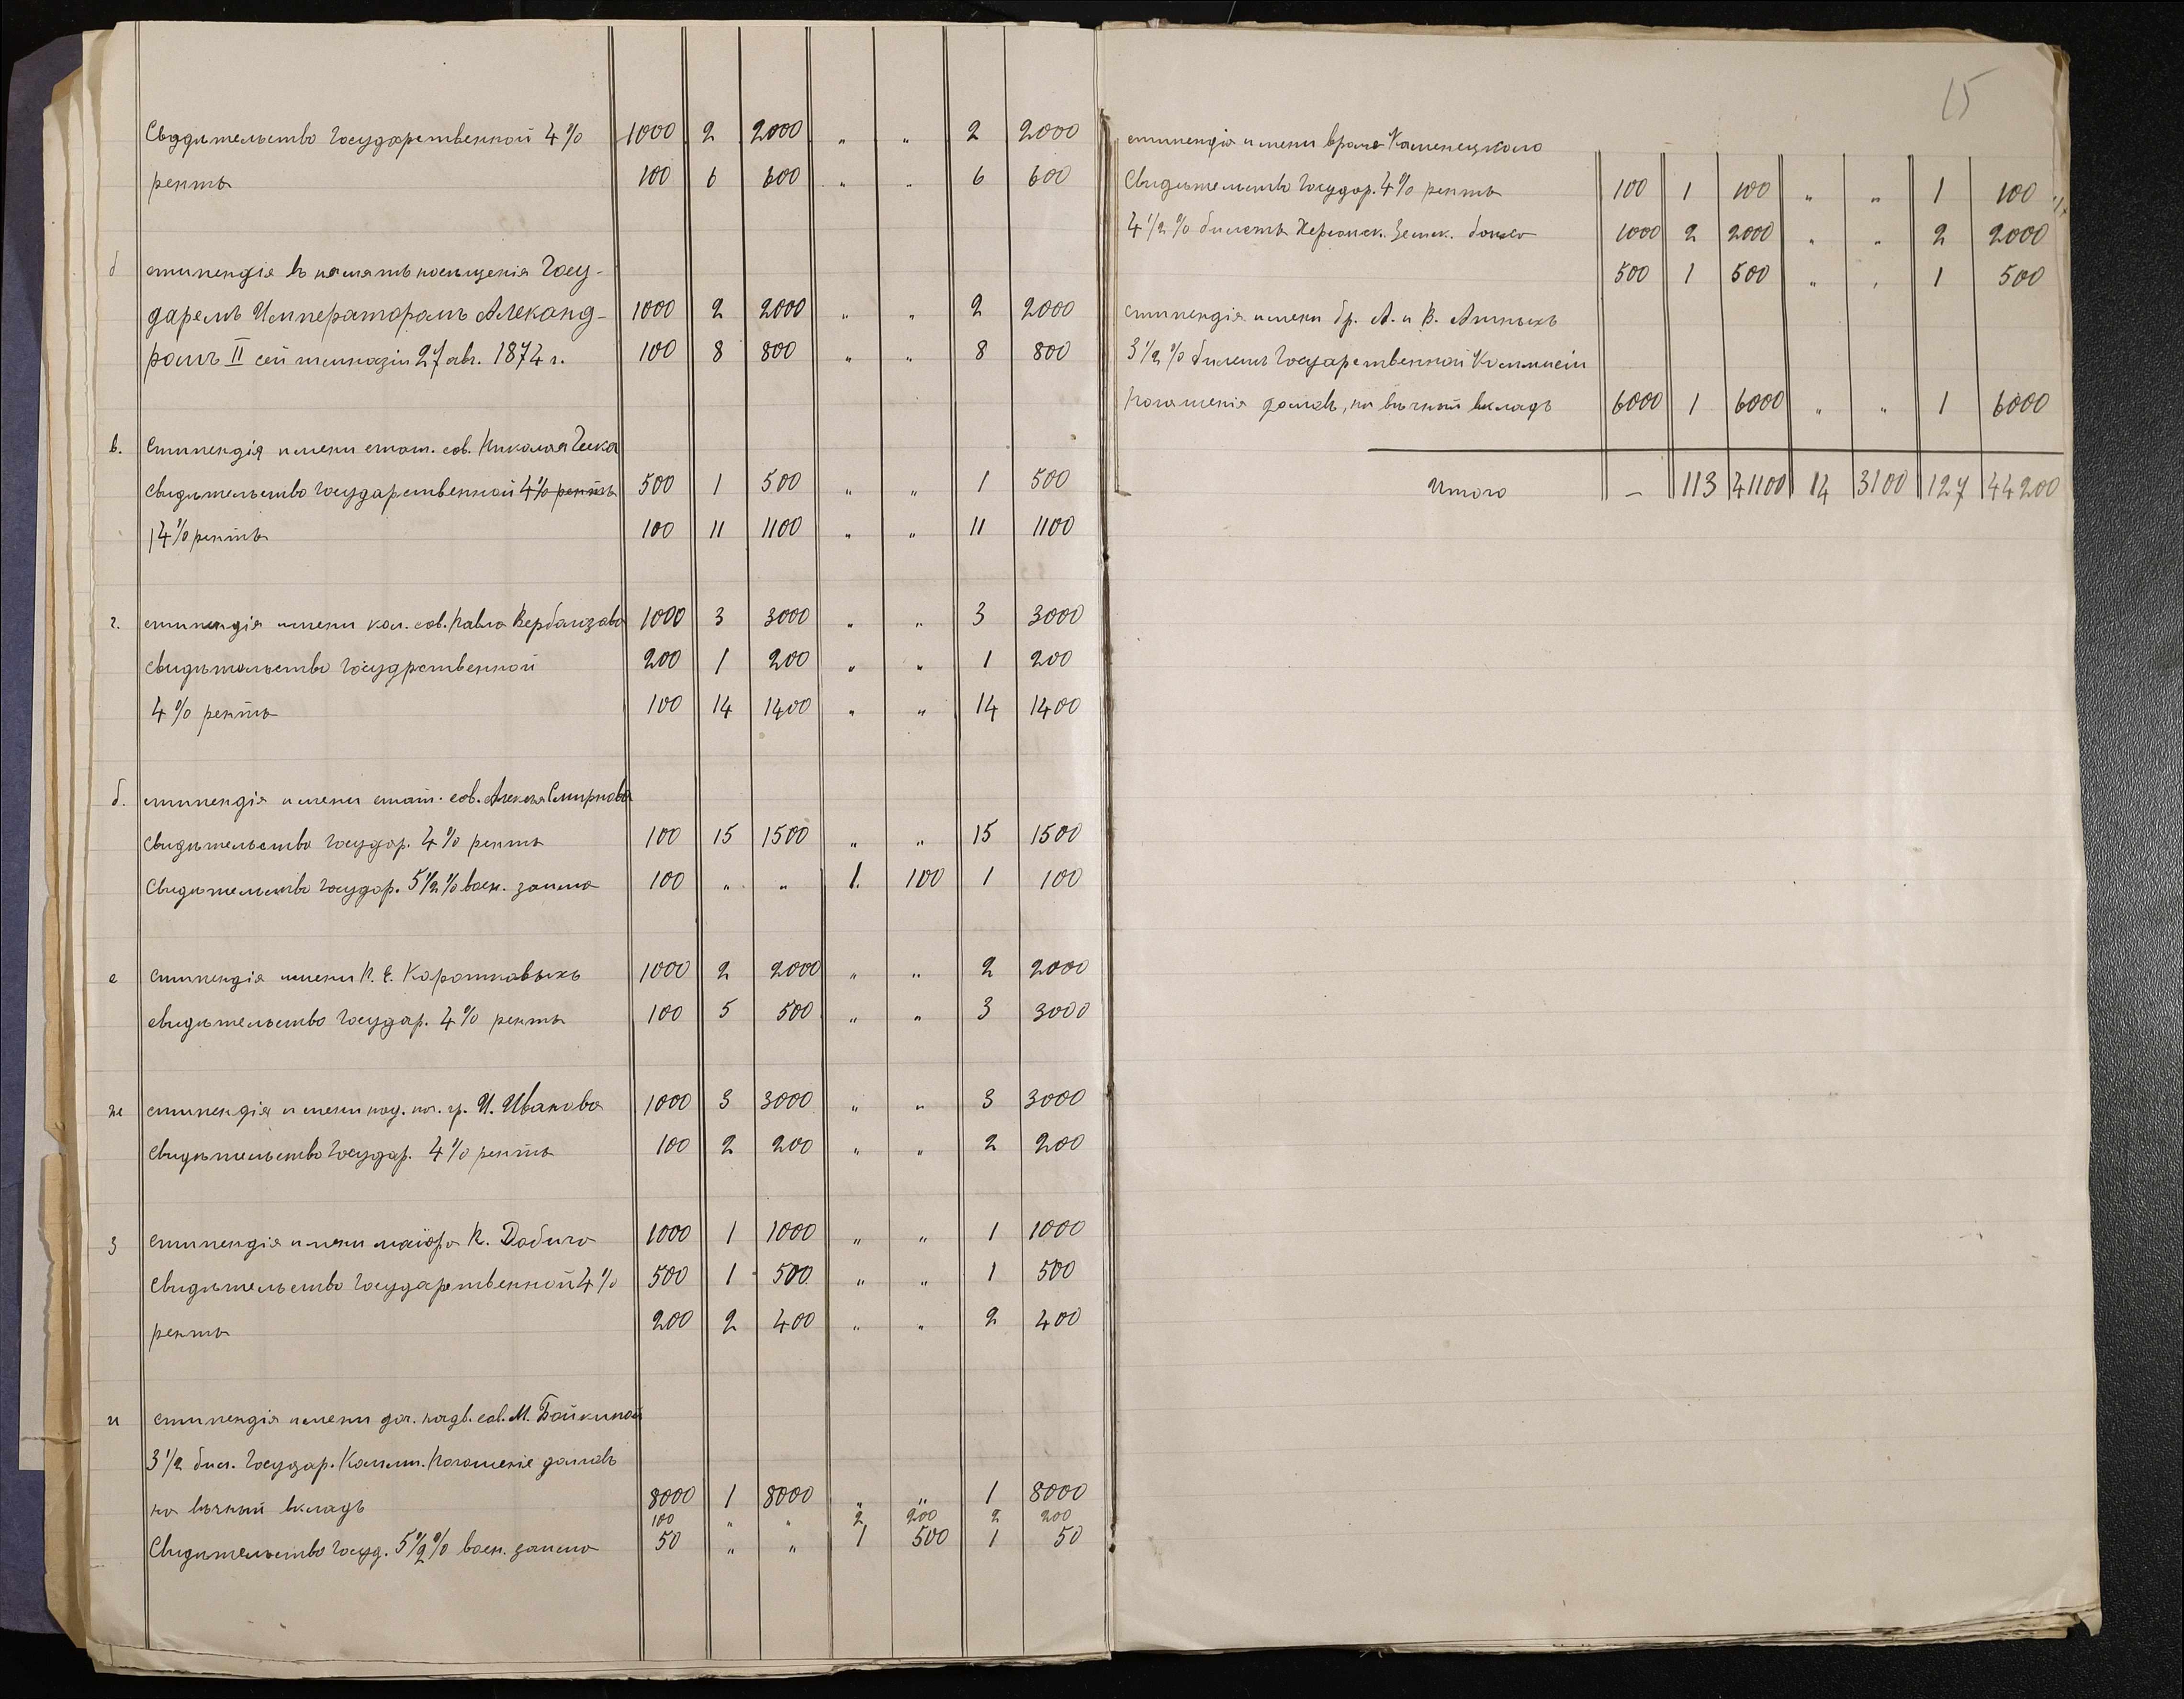 Свидѣтельство Государственной 4% 1000 2 2000 " " 2 2000
ренты 100 6 600 " " 6 600
б стипендія въ память посѣщенія Госу-
даремъ Императоромъ Александ- 1000 2 2000 " " 2 2000
ромъ II сей гимназіи 27 авг. 1874 г. 100 8 800 " " 8 800
в. Стипендія имени стат. сов. Николая Гески
свидѣтельство Государственной 4% ренты 500 1 500 " " 1 500
4% ренты 100 11 1100 " " 11 1100
г. стипендія имени кол. сов. Павла Вербанзова 1000 3 3000 " " 3 3000
свидѣтельство Госудрственной 200 1 200 " " 1 200
4% ренты 100 14 1400 " " 14 1400
д. стипендія имени стат. сов. Алексѣя Смирнова
Свидѣтельство Государ. 4% ренты 100 15 1500 " " 15 1500
Свидѣтельство Государ. 5 1/2% воен. займа 100 " " 1. 100 1 100
е стипендія имени К. Е. Коротковыхъ 1000 2 2000 " " 2 2000
свидѣтельство Государ. 4% ренты 100 5 500 " " 3 3000
ж стипендія имени поч. гр. И. Иванова 1000 3 3000 " " 3 3000
Свидѣтельство Государ. 4% ренты 100 2 200 " " 2 200
з стипендія имени маіора К. Добича 1000 1 1000 " " 1 1000
Свидѣтельство Государственной 4% 500 1 500 " " 1 500
ренты 200 2 400 " " 2 400
и стипендія имени доч. надв. сов. М. Бойкиной
3 1/2 бил. Государ. Комм. Погашеніе долговъ
на вѣчный вкладъ 8000 1 8000 " " 1 8000
100 " " 2 200 2 200
Свидѣтельство Госуд. 5 1/2% воен. займа 50 " " 1 500 1 50
15
стипендія имени врача Каменецкаго
Свидѣтельство Государ. 4% ренты 100 1 100 " " 1 100
4 1/2% билеты Херсонск. Земск. банка 1000 2 2000 " " 2 2000
500 1 500 " " 1 500
стипендія имени бр. А. и В.
3 1/2% билет Государственной Коммисіи
Погашенія долговъ, на вѣчный вкладъ 6000 1 6000 " " 1 6000
Итого – 113 41100 14 3100 127 44200